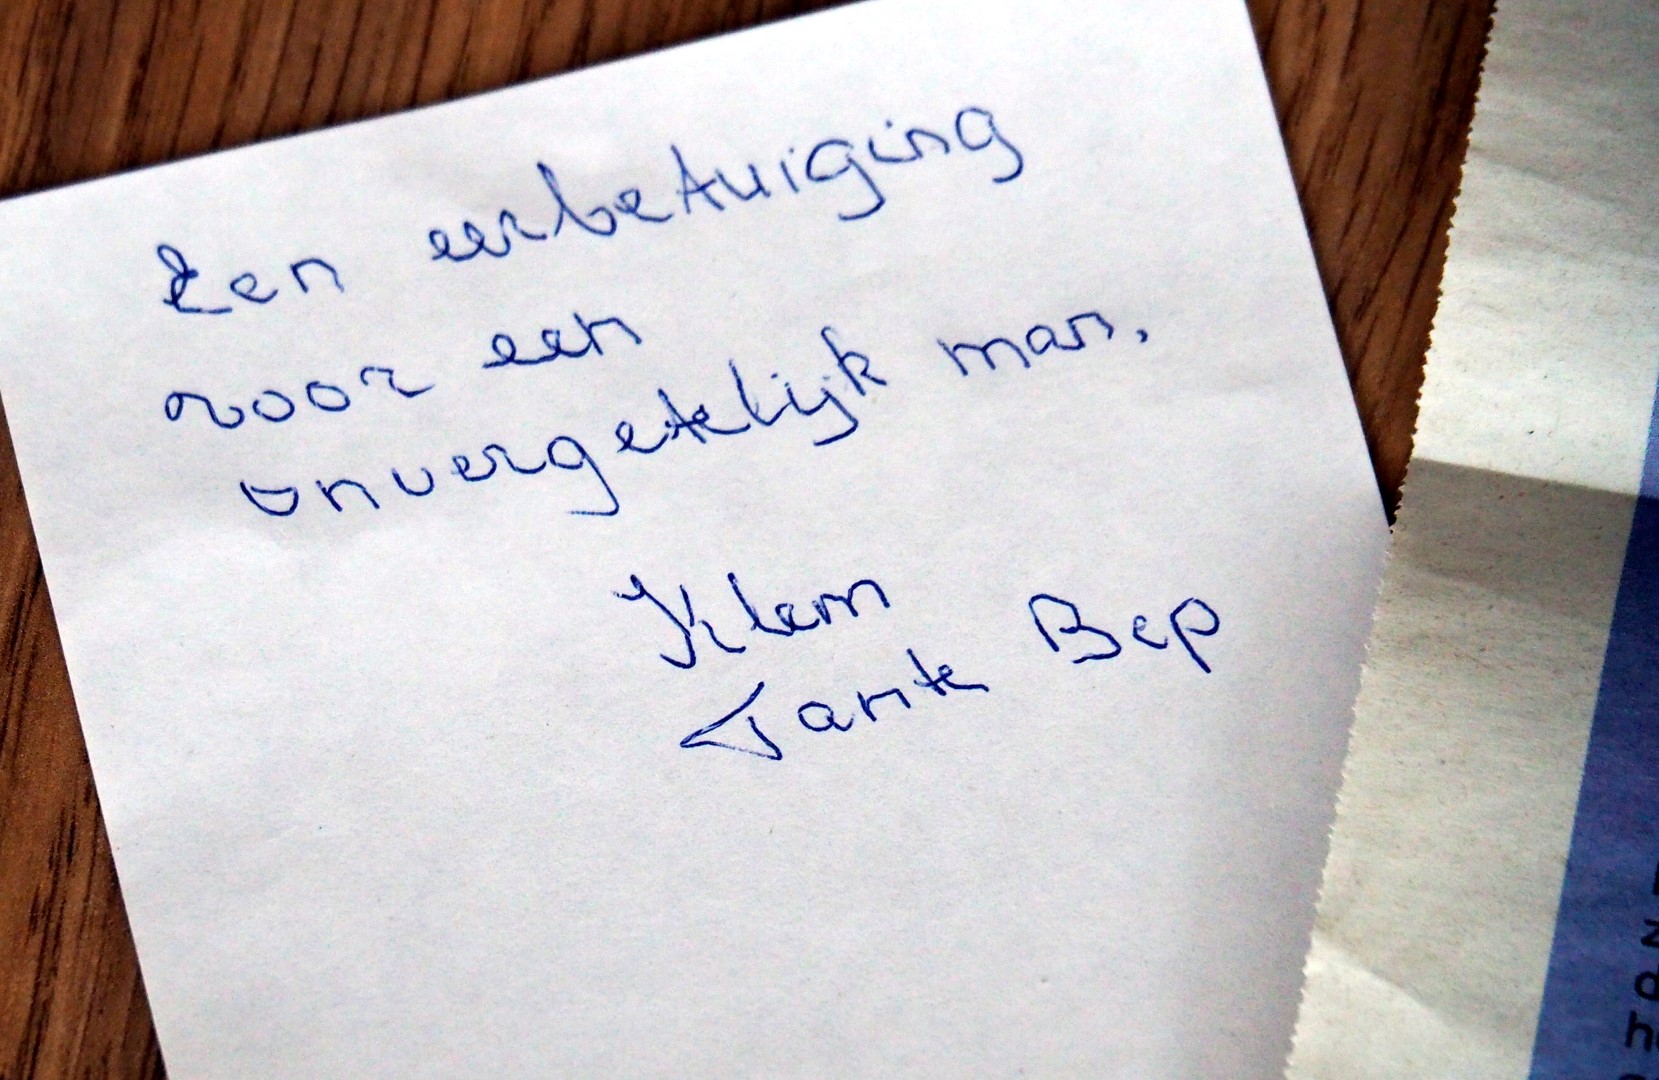 Een eerbetuiging
voor een
onvergetelijk man.
Klem
Tante Bep